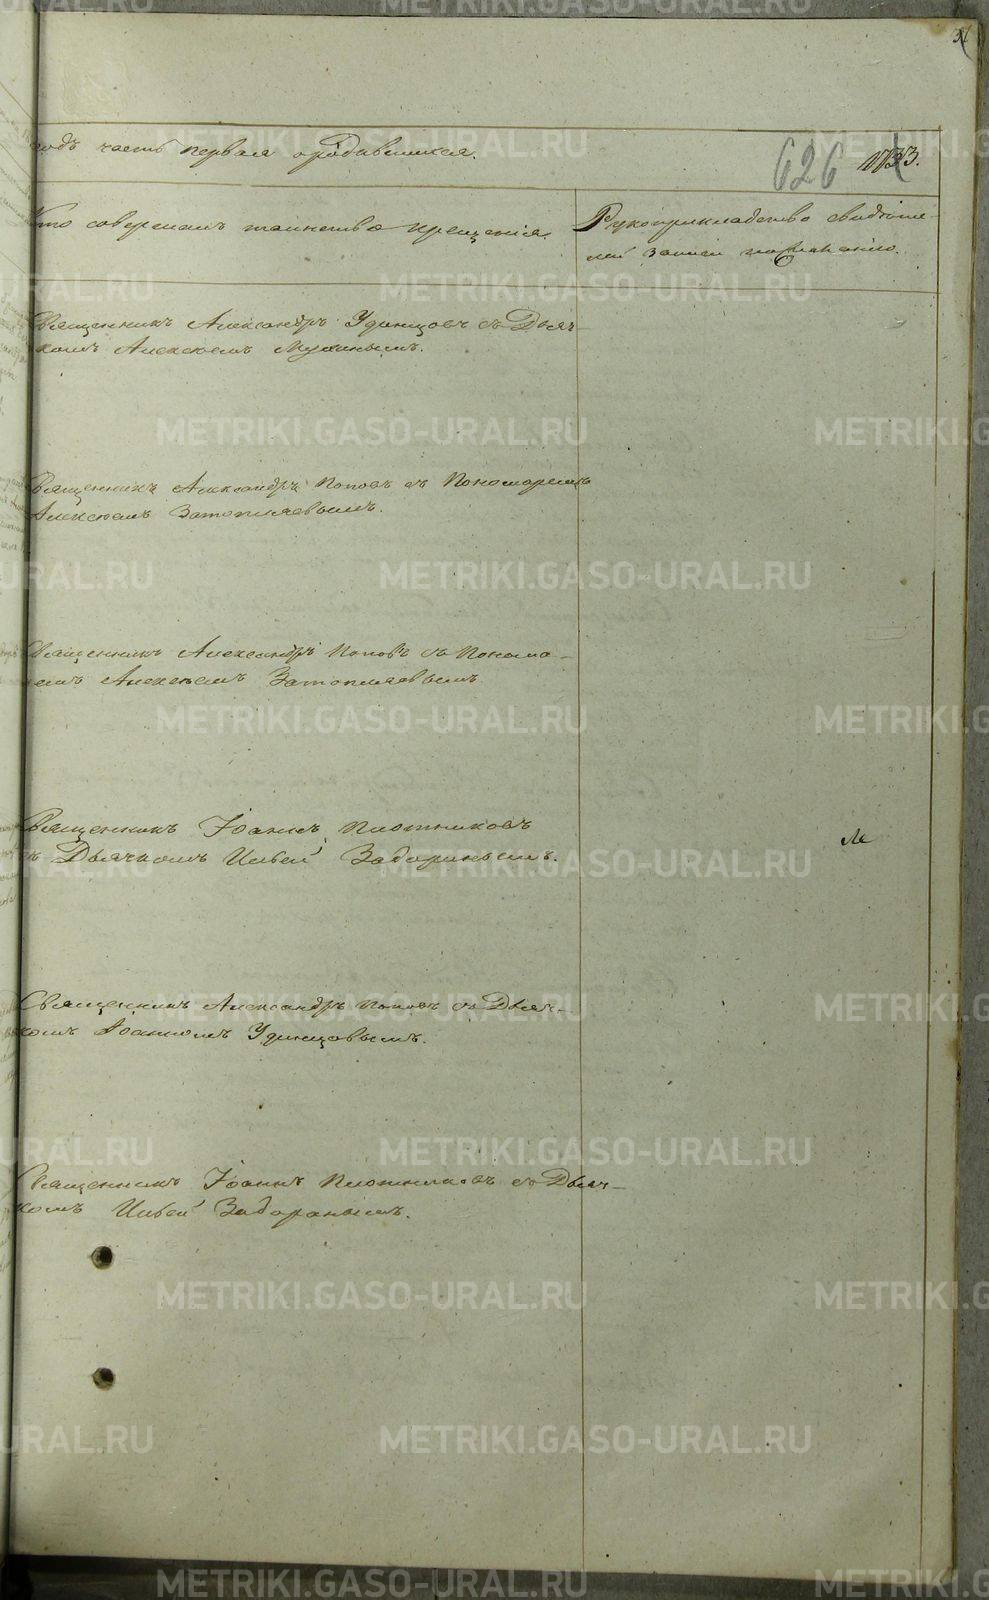 годъ часть первая о родившихся.
626
Кто совершалъ таинство крещенія.
Рукоприкладство свидѣте-
лей записи по желанію.
Священникъ Александръ Удинцовъ съ Дьяч-
комъ Алексѣемъ Мухинымъ.
Священникъ Александръ Поповъ съ Пономаремъ
Алексѣемъ Затопляевымъ.
Священникъ Александръ Поповъ съ Понома-
ремъ Алексѣемъ Затопляевымъ
Священникъ Іоаннъ Плотниковъ
съ Дьячкомъ Ильей Задоринымъ.
Священникъ Александръ Поповъ съ Дьяч-
комъ Іоанномъ Удинцовымъ.
Священникъ Іоаннъ Плотниковъ съ Дьяч-
комъ Ильей Задоринымъ.
METRIKI.GASO-URAL.RU